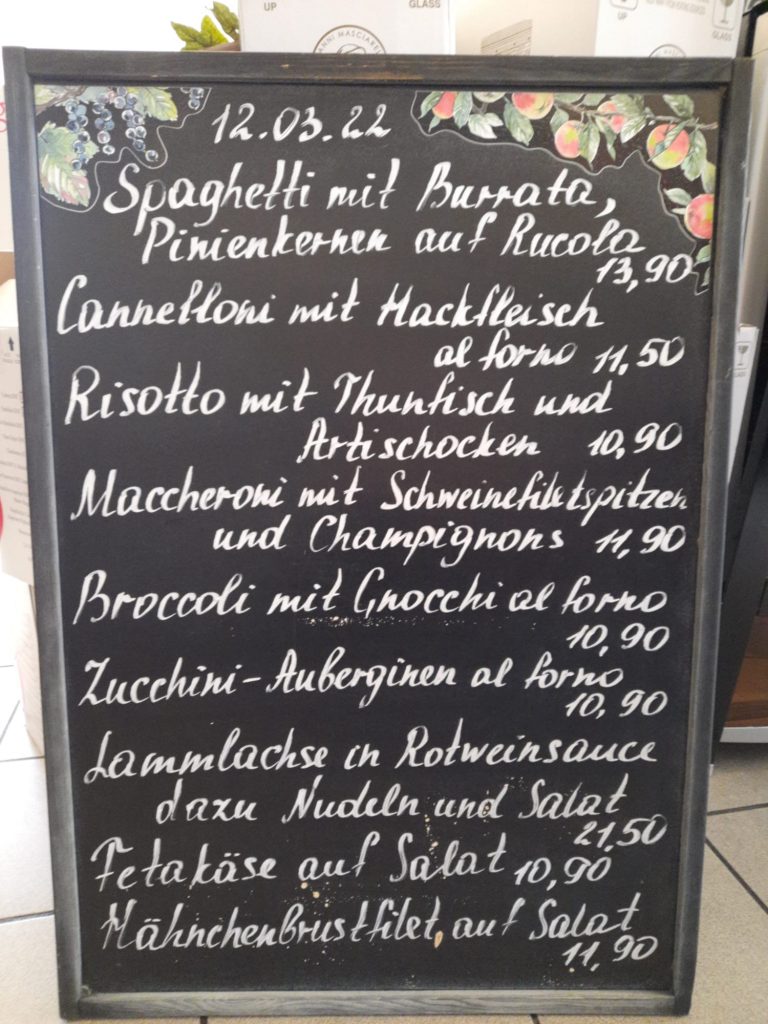 UP
GLASS
UP
GLASS
ANNI MASCIAREL
12.03.22
Spaghetti mit Burrata,
Pinienkernen auf Rucola
13,90
Cannelloni mit Hackfleisch
al forno 11,50
Risotto mit Thunfisch und
Artischocken 10,90
Maccheroni mit Schweinefiletspitzen
und Champignons 11,90
Broccoli mit Gnocchi al forno
10,90
Zucchini-Auberginen al forno
10,90
Lammlachse in Rotweinsauce
dazu Nudeln und Salat
21,50
Fetakäse auf Salat 10,90
Hähnchenbrustfilet, auf Salat
11,90
GLASS